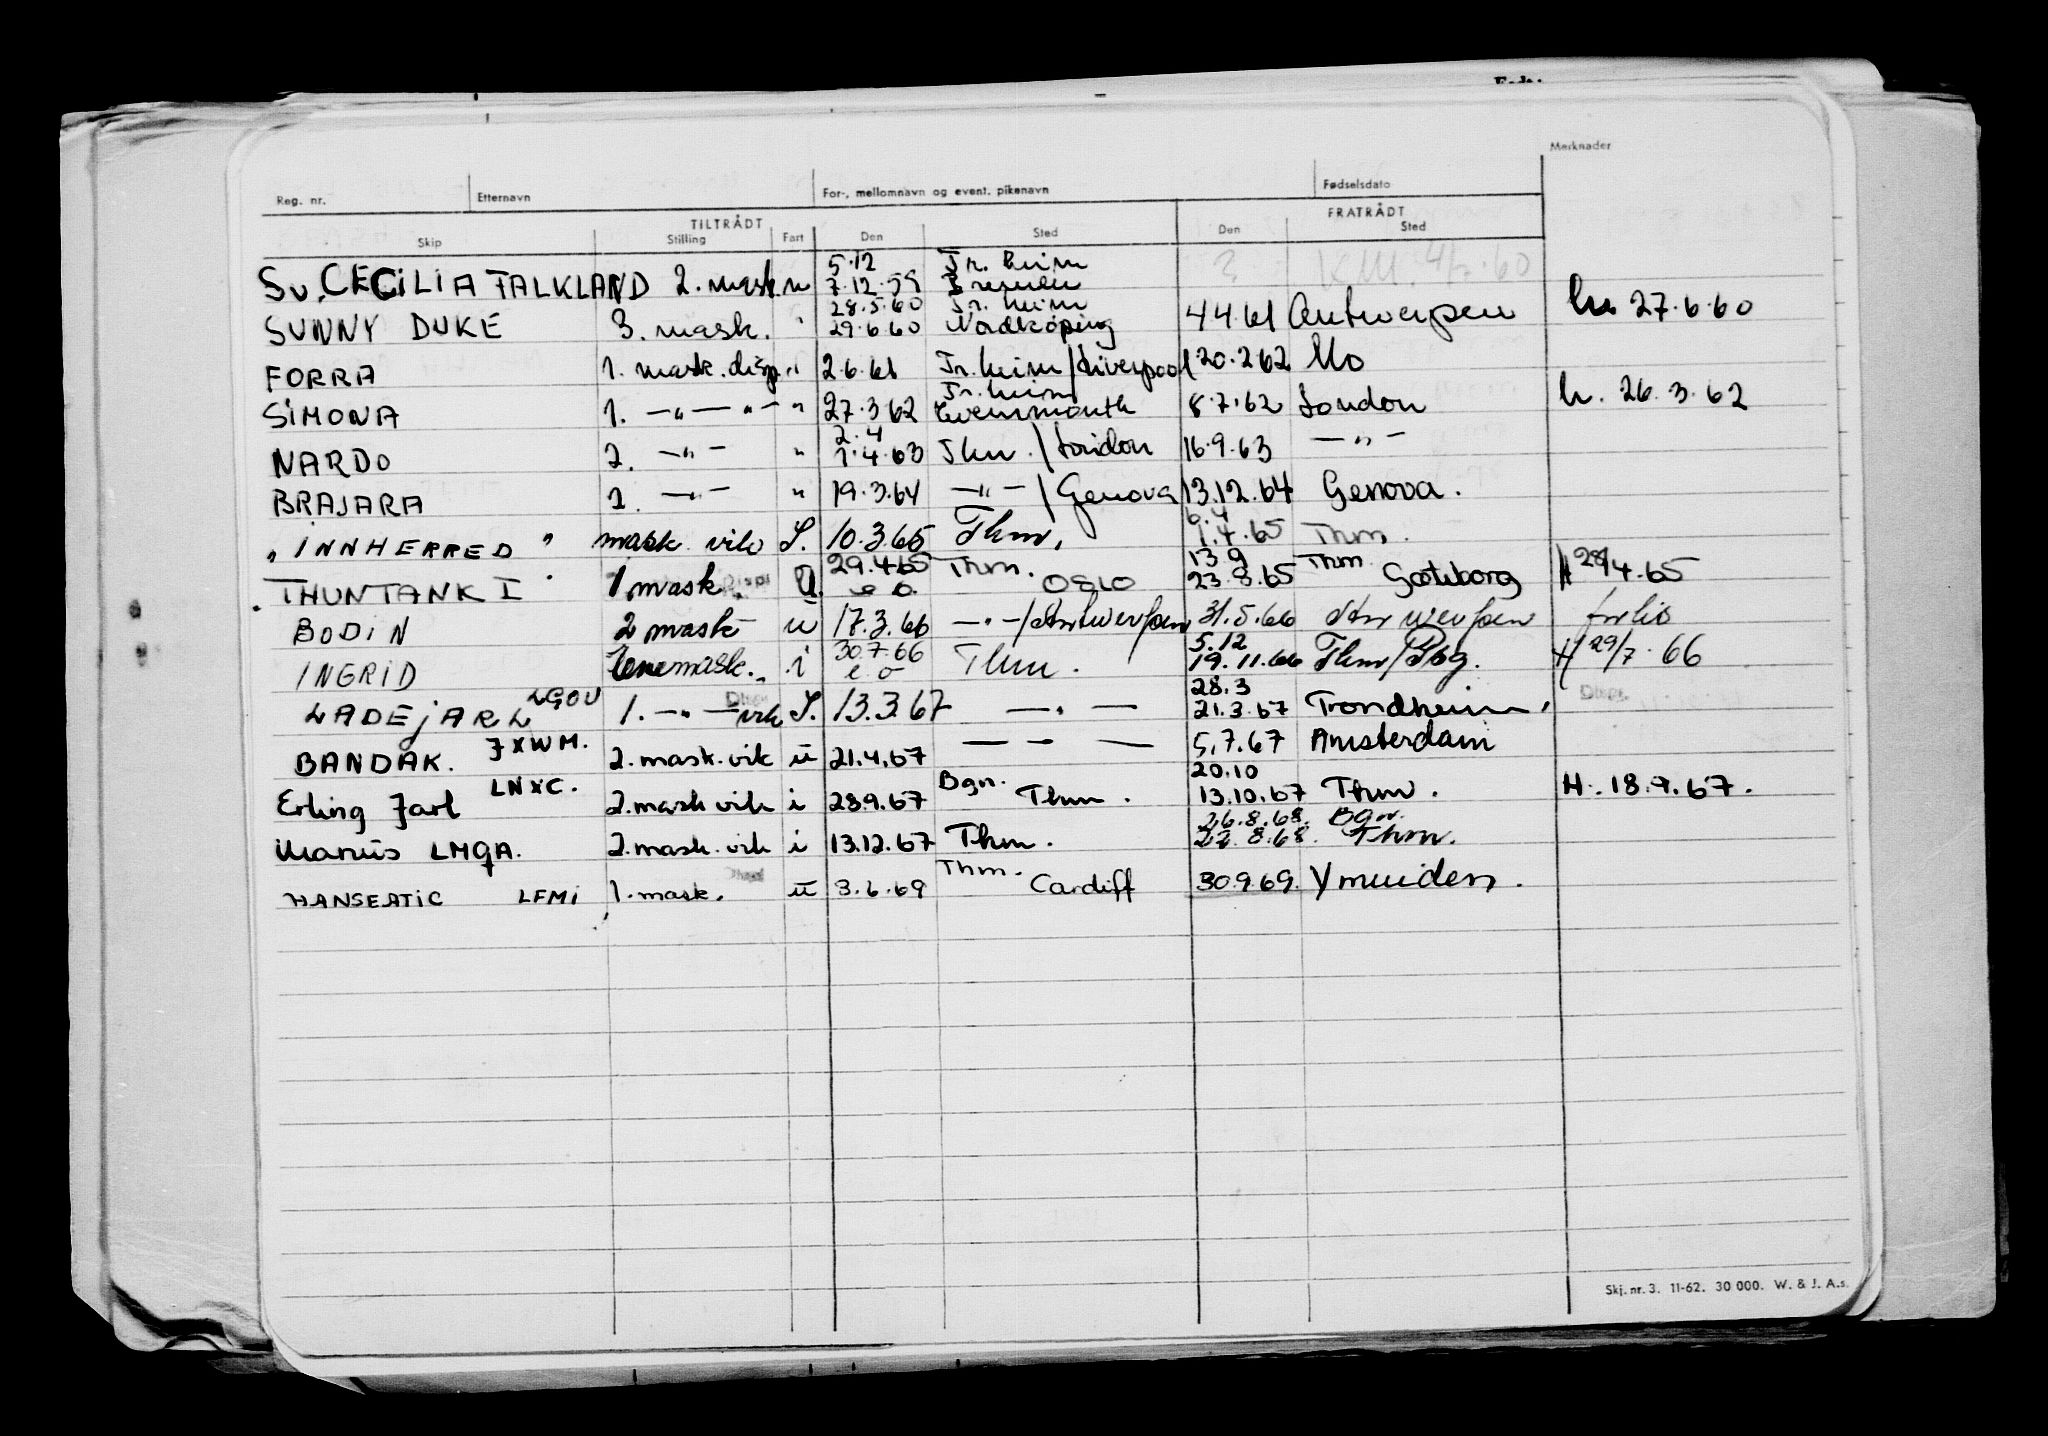 Merknader
Reg. nr. Etternavn For-, mellomnavn og event. pikenavn Fødselsdato
TILTRÅDT FRATRÅDT
Skip Stilling Fart Den Sted Den Sted
5.12 Tr.heim
Sv. CECILIA FALKLAND 2. mask. u 7.12.59 KM. 4/7.60
28.5.60 Tr.heim
SUNNY DUKE 3. mask. " 29.6.60 Nordköping 4.4.61 Antwerpen h. 27.6.60
FORRA 1. mask. disp. " 2.6.61 Tr.heim/Liverpool 20.2.62 Mo
Tr.heim
SIMONA 1. —"— "— " 27.3.62 8.7.62 London h. 26.3.62
2.4
NARDO 2. —"— " 1.4.63 Thm./London 16.9.63 —"—
BRAJARA 2. —"— " 19.3.64 —"—/Genova 13.12.64 Genova.
6.4
" INNHERRED " mask. vik S. 10.3.65 Thm. 1.4.65 Thm.
29.4.65 Thm. 13.9 Thm.
" THUNTANK I " 1 mask. Disp. U. e.o. OSLO 23.8.65 Gøteborg H 28/4.65
BODIN 2 mask u 17.3.66 —"—/Antwerpen 31.5.66 Antwerpen
30.7.66 5.12
INGRID Enemask. i e.o. Thm. 19.11.66 Thm/Bg. H 29/7.66
28.3
LADEJARL LGOU 1. —"— vik S. 13.3.67 —"— 21.3.67 Trondheim. Disp.
BANDAK. JXWM. 2. mask. vik u 21.4.67 —"— 5.7.67 Amsterdam
20.10
Erling Jarl LNXC. 2. mask vik i 23.9.67 Bgn. Thm. 13.10.67 Thm. H. 18.9.67.
26.8.68. Bgn.
Marius LMQA. 2. mask. vik i 13.12.67 Thm. 22.8.68. Thm.
HANSEATIC LFMI 1. mask. u 3.6.69 Thm. Cardiff 30.9.69. Ymuiden.
Skj. nr. 3. 11-62. 30 000. W. & J. A.s.